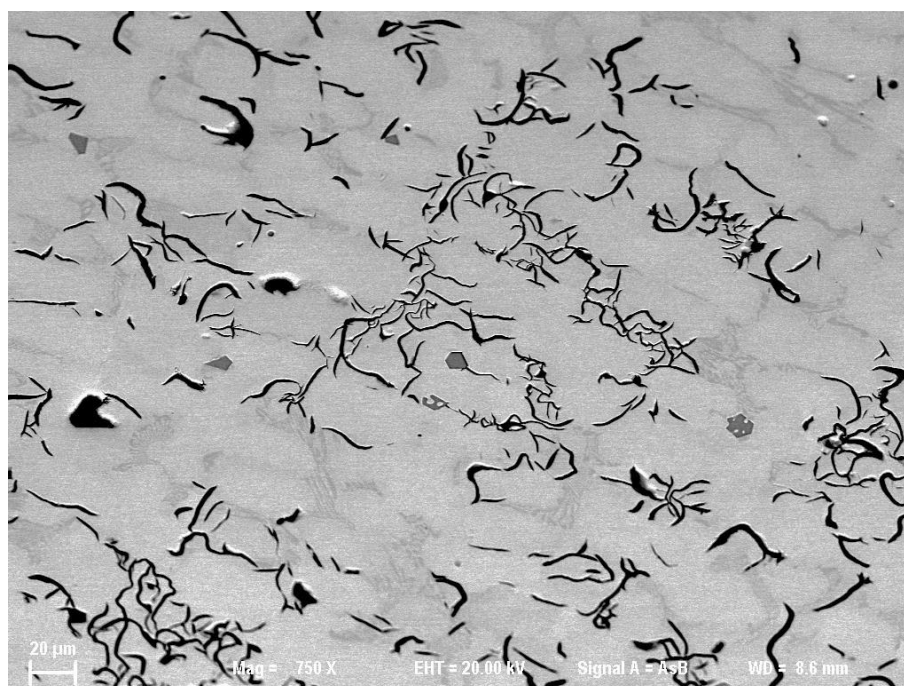 20 µm
Mag = 750 X EHT = 20.00 kV Signal A = AsB WD = 8.6 mm